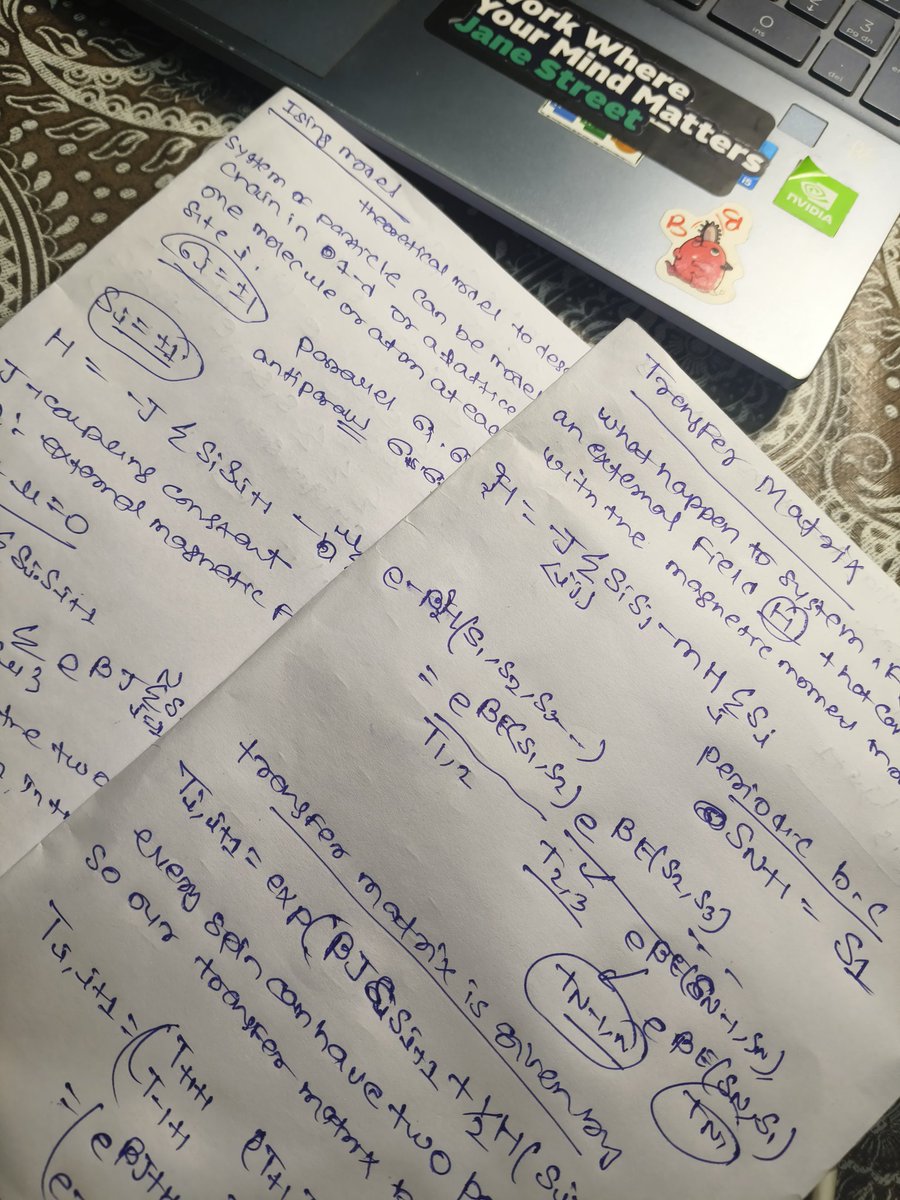 Work Where
Your Mind Matters
Jane Street
NVIDIA
i5
0
ins
3
pg dn
del
Ising model
theoretical model to
system of particle can be
Chain in 1-d or a lattice
one molecule or atom at
site i.
σi = ±1
Si = ±1
parallel
antiparallel
H = -J Σ SiSi+1 -
J - coupling constant
external magnetic
μ = 0
SiSi+1
Σ e βJ Σ
the two
Transfer Matrix
what happen to system
an external field (H)
with the magnetic moment
H = -J Σ SiSj - mH Σ Si
<ij>
periodic b.c
SN+1 = S1
e-βH(S1, S2, S3 --)
= e βE(S1, S2) e βE(S2, S3) --
T1,2
T2,3
e βE(SN-1, SN),
TN-1,N
e βE(SN, S1)
TN1
transfer matrix is given by
Ti,i+1 = exp(βJSiSi+1 + 1/2 H(Si
every spin can have two
so our transfer matrix
Ti,i+1 = (T+1+1
T-1+1
= (e βJ+
e-